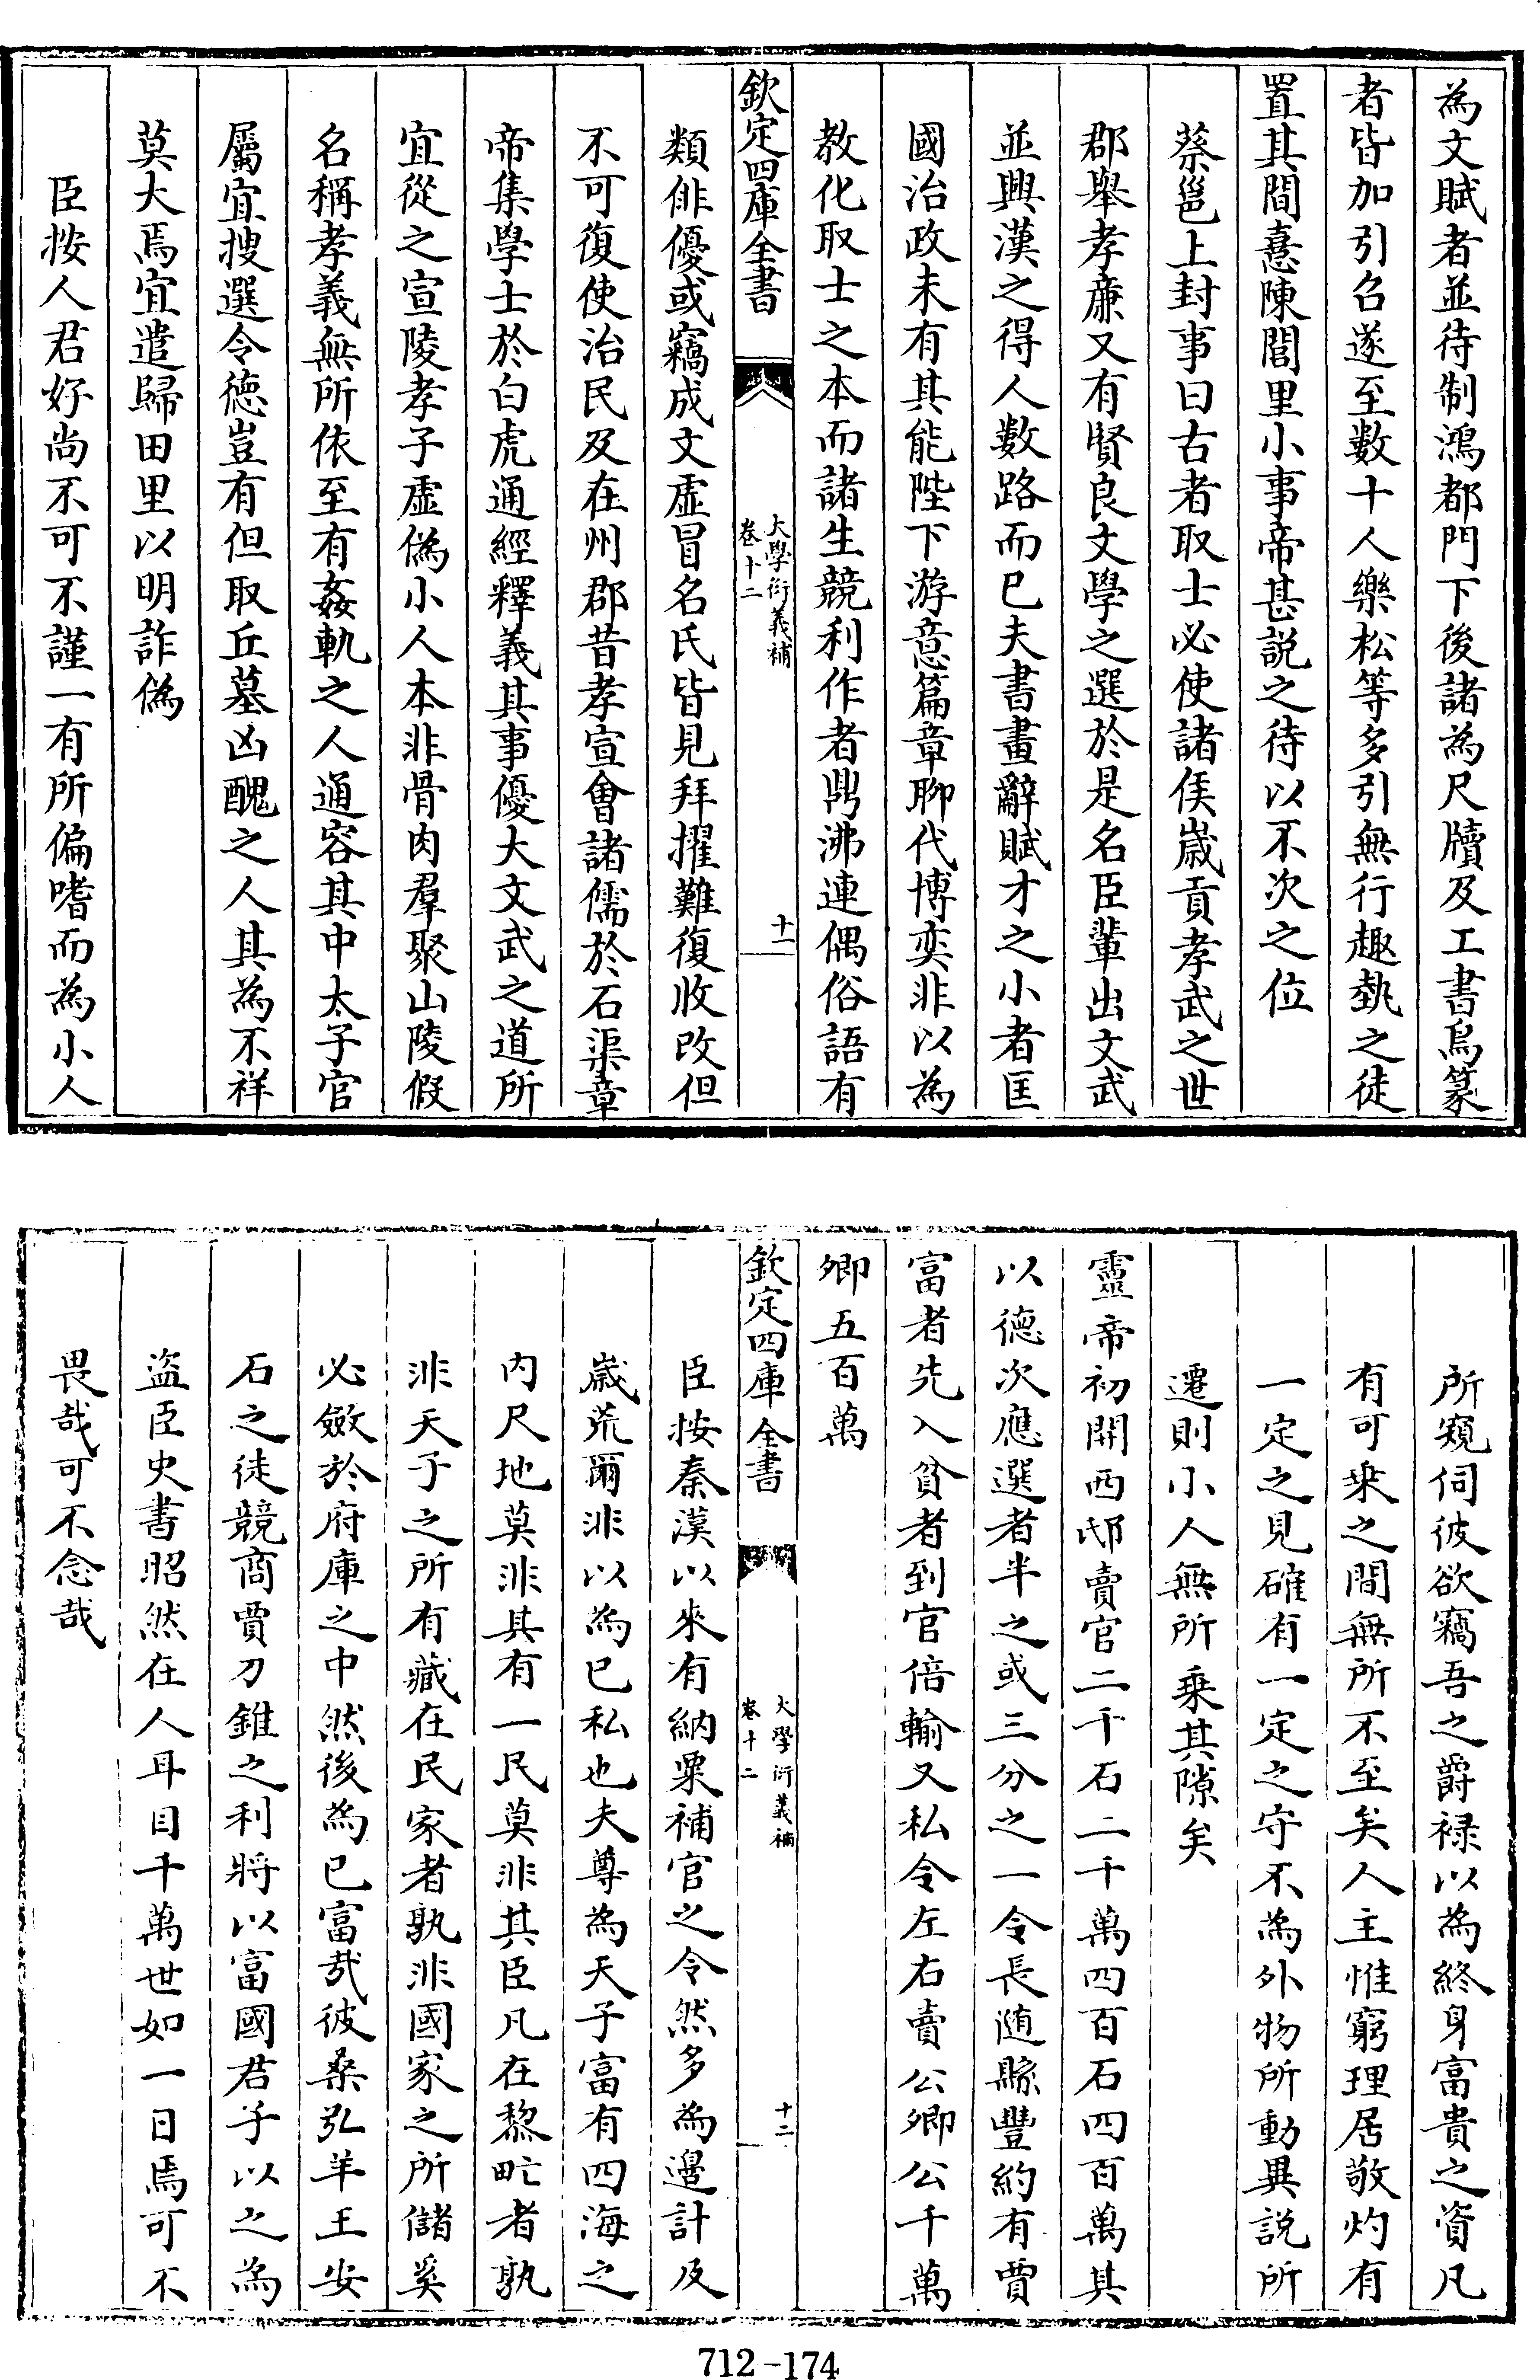 為文賦者並待制鴻都門下後諸為尺牘及工書鳥篆
者皆加引召遂至數十人樂松等多引無行趣埶之徒
置其間憙陳閭里小事帝甚説之待以不次之位
蔡邕上封事曰古者取士必使諸侯嵗貢孝武之世
郡舉孝亷又有賢良文學之選於是名臣輩出文武
並興漢之得人數路而已夫書畫辭賦才之小者匡
國治政未有其能陛下游意篇章聊代博奕非以為
教化取士之本而諸生競利作者鼎沸連偶俗語有
欽定四庫全書
大學衍義補
卷十二
十一
類俳優或竊成文虛冒名氏皆見拜擢難復收改但
不可復使治民及在州郡昔孝宣會諸儒於石渠章
帝集學士於白虎通經釋義其事優大文武之道所
宜從之宣陵孝子虛偽小人本非骨肉羣聚山陵假
名稱孝義無所依至有姦軌之人通容其中太子官
屬宜搜選令徳豈有但取丘墓凶醜之人其為不祥
莫大焉宜遣歸田里以明詐偽
臣按人君好尚不可不謹一有所偏嗜而為小人
所窺伺彼欲竊吾之爵禄以為終身富貴之資凡
有可乗之間無所不至矣人主惟窮理居敬灼有
一定之見確有一定之守不為外物所動異説所
遷則小人無所乗其隙矣
靈帝初開西邸賣官二千石二千萬四百石四百萬其
以德次應選者半之或三分之一令長隨縣豐約有賈
富者先入貧者到官倍輸又私令左右賣公卿公千萬
卿五百萬
欽定四庫全書
大學衍義補
卷十二
十二
臣按秦漢以來有納粟補官之令然多為邊計及
嵗荒爾非以為已私也夫尊為天子富有四海之
内尺地莫非其有一民莫非其臣凡在黎甿者孰
非天子之所有藏在民家者孰非國家之所儲奚
必斂於府庫之中然後為已富哉彼桑弘羊王安
石之徒競商賈刀錐之利將以富國君子以之為
盜臣史書昭然在人耳目千萬世如一日焉可不
畏哉可不念哉
712-174